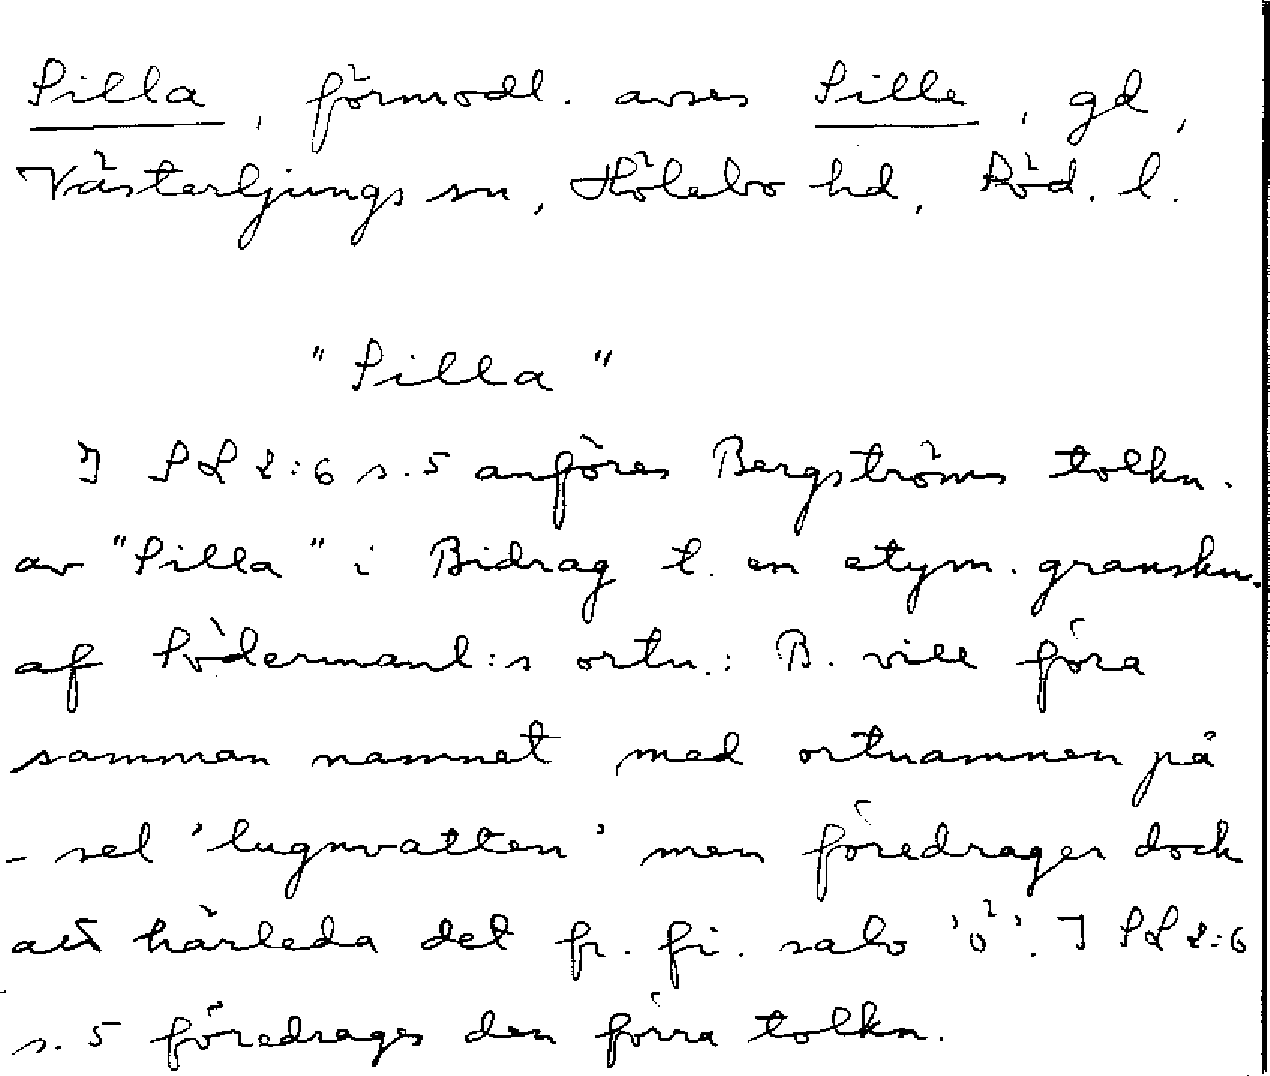 Silla, förmodl. avses Sille, gd,
Västerljungs sn, Hölebo hd, Söd. l.
"Silla"
I SL 2:6 s. 5 anföres Bergströms tolkn.
av "Silla" i Bidrag t. en etym. granskn.
af Södermanl:s ortn.: B. vill föra
samman namnet med ortnamnen på
-sel 'lugnvatten' men föredrager dock
att härleda det fr. fi. salo 'ö'. I SL 2:6
s. 5 föredrages den förra tolkn.